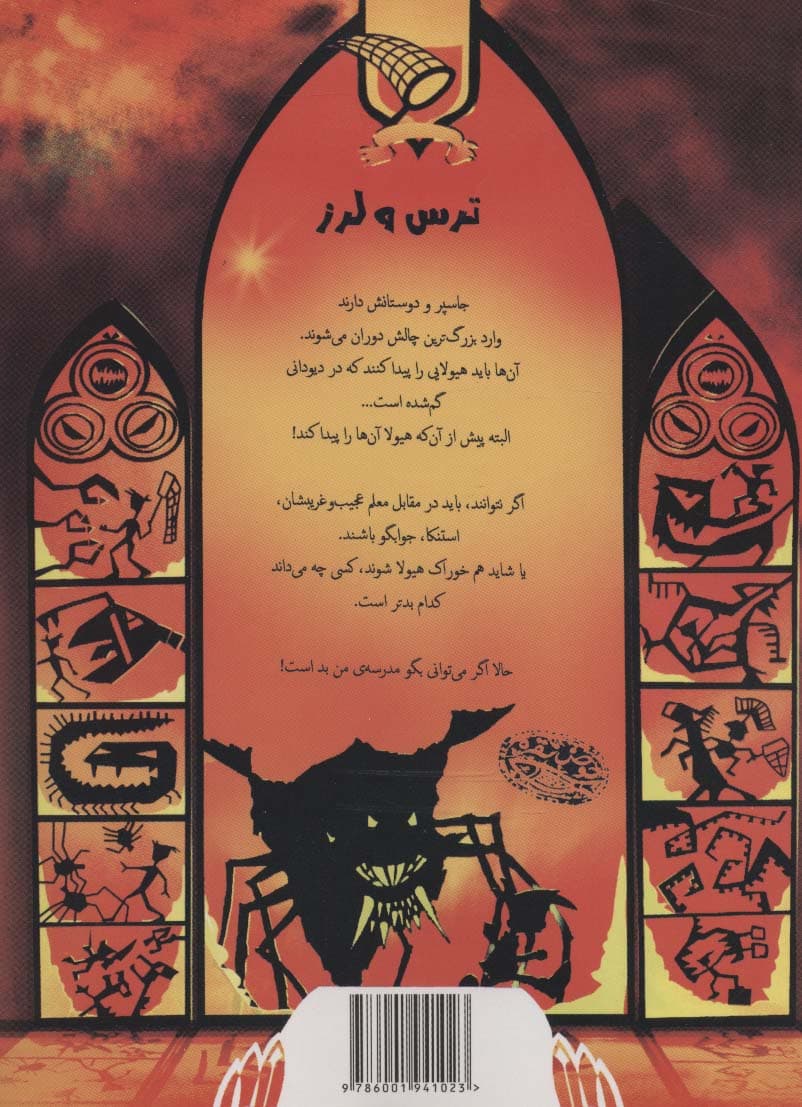 ترس و لرز
جاسپر و دوستانش دارند
وارد بزرگ‌ترین چالش دوران می‌شوند.
آن‌ها باید هیولایی را پیدا کنند که در دیودانی
گم‌شده است...
البته پیش از آن‌که هیولا آن‌ها را پیدا کند!
اگر نتوانند، باید در مقابل معلم عجیب‌و‌غریبشان،
استنکا، جوابگو باشند.
یا شاید هم خوراک هیولا شوند، کسی چه می‌داند
کدام بدتر است.
حالا اگر می‌توانی بگو مدرسه‌ی من بد است!
9 786001 941023 >